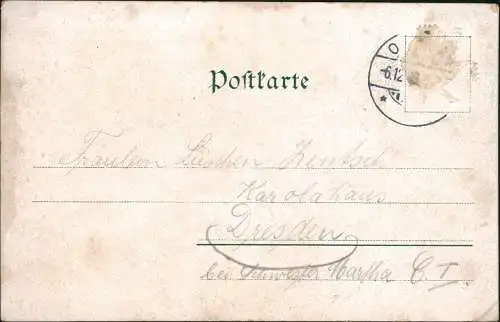 O
6.12
Postkarte
Fräulein Lieschen Zentsch
Karolahaus
Dresden
bei Schwester Martha C I